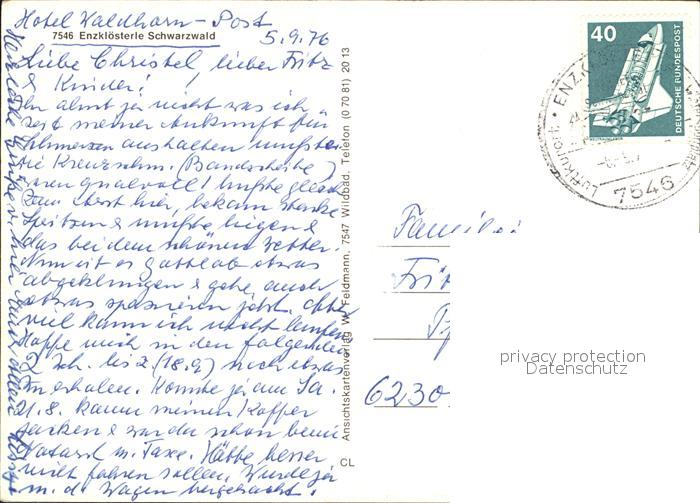 Hotel Waldhorn-Post
7546 Enzklösterle Schwarzwald
5.9.76
Liebe Christel, lieber Fritz
& Kinder!
Ihr ahnt ja nicht was ich
seit meiner Ankunft für
Schmerzen aushalten mußte
die Kreuzschm. (Bandscheibe)
waren qualvoll! Mußte gleich
zum Arzt hier, bekam starke
Spritzen & mußte liegen &
das bei dem schönen Wetter.
Nun ist es Gottlob etwas
abgeklungen & gehe auch
etwas spazieren jetzt. Aber
viel kann ich nicht laufen.
Hoffe mich in den folgenden
2 Wch. bis z. (18.9) noch etwas
zu erholen. Konnte ja am Sa.
21.8. kaum meinen Koffer
packen & war da schon beim
Notarzt m. Taxe. Hätte besser
nicht fahren sollen. Wurde ja
m. d. Wagen hergebracht.
Herzliche Grüße
Ansichtskartenverlag W. Feldmann, 7547 Wildbad, Telefon (0 70 81) 20 13
CL
40
DEUTSCHE BUNDESPOST
Luftkurort
7546
Familie
6230
privacy protection
Datenschutz